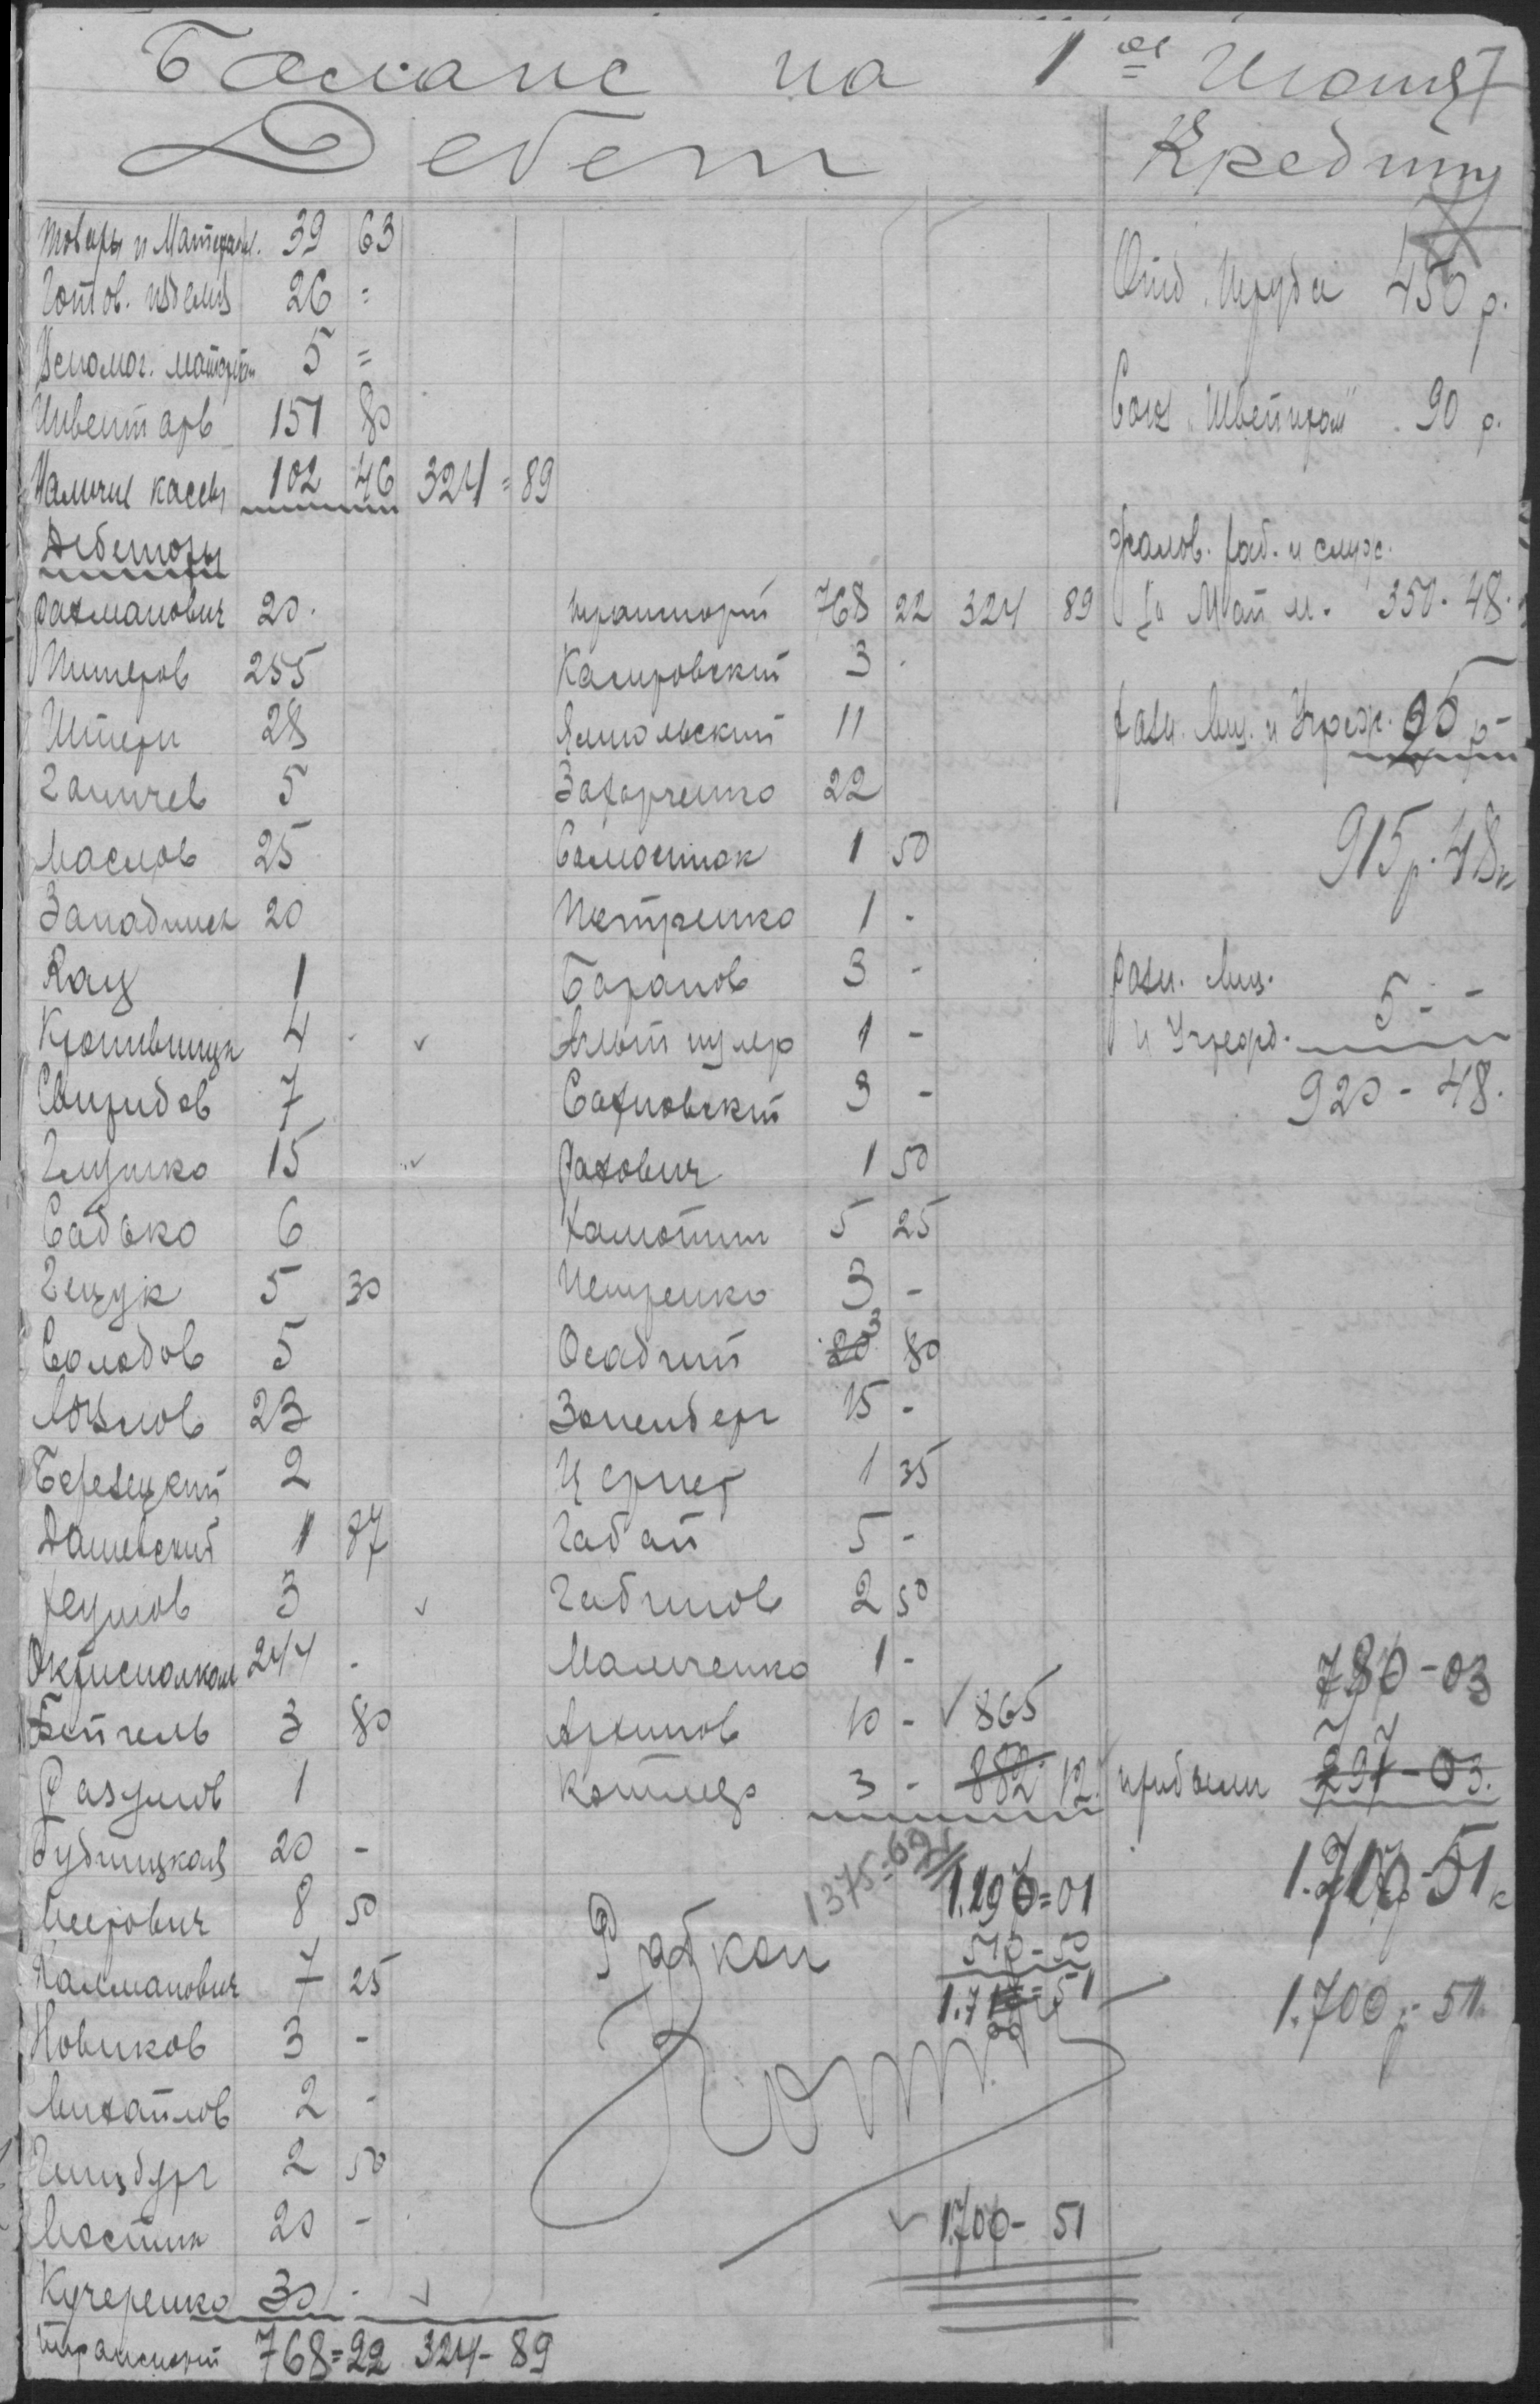 Баланс на 1ое Июня
Дебет
Товары и Матерял. 39 63
Готов. изделия 26 =
Вспомог. матерял 5 =
Инвентарь 151 80
Наличие кассы 102 46 324 = 89
Дебеторы
Рахманович 20.
Питеров 255
Штерн 28
Ганичев 5
Маслов 25
Западинск 20
Кац 1
Кропивницк 4 -
Свиридов 7
Глушко 15
Садько 6
Гецук 5 30
Солодов 5
23
Березецкий 2
Дашевский 1 87
Реушов 3
Окрисполком 244 -
Бейгель 3 80
Разумов 1
Рудницкая 20 -
Меерович 8 50
Калманович 7 25
Новиков 3 -
Михайлов 2 -
Гинзбург 2 50
Мостин 20 -
Кучеренко 30 -
Транспорт 768=22 324-89
транспорт 768 22 324 89
Кагировский 3 -
Ямпольский 11
Захарченко 22
Самостюк 1 50
Петренко 1 -
Баранов 3 -
Альтшулер 1 -
Сахновский 3 -
Рахович 1 50
Хамотин 5 25
Петренко 3 -
Осадчий 20 3 80
Зоненберг 15 -
Чернег 1 35
Габай 5 -
Габинов 2 50
Мальченко 1 -
Архипов 10 - 865
Котляр 3 - 882 12
1375=69
1.290=01
Рабкоп 510-50
1.7 = 51
1700- 51
Кредит
Отд. Труда 450 р.
Союз "Швейпром" 90 р.
Жалов. раб. и служ.
За Май м. 350. 48.
Разн. лиц. и Учрежд. 25 р-
915 р. 48 к
Разн. лиц.
и Учрежд. 5 - -
920 - 48.
780-03
прибыли 797-03.
1.710-51 к
1.700 р - 51